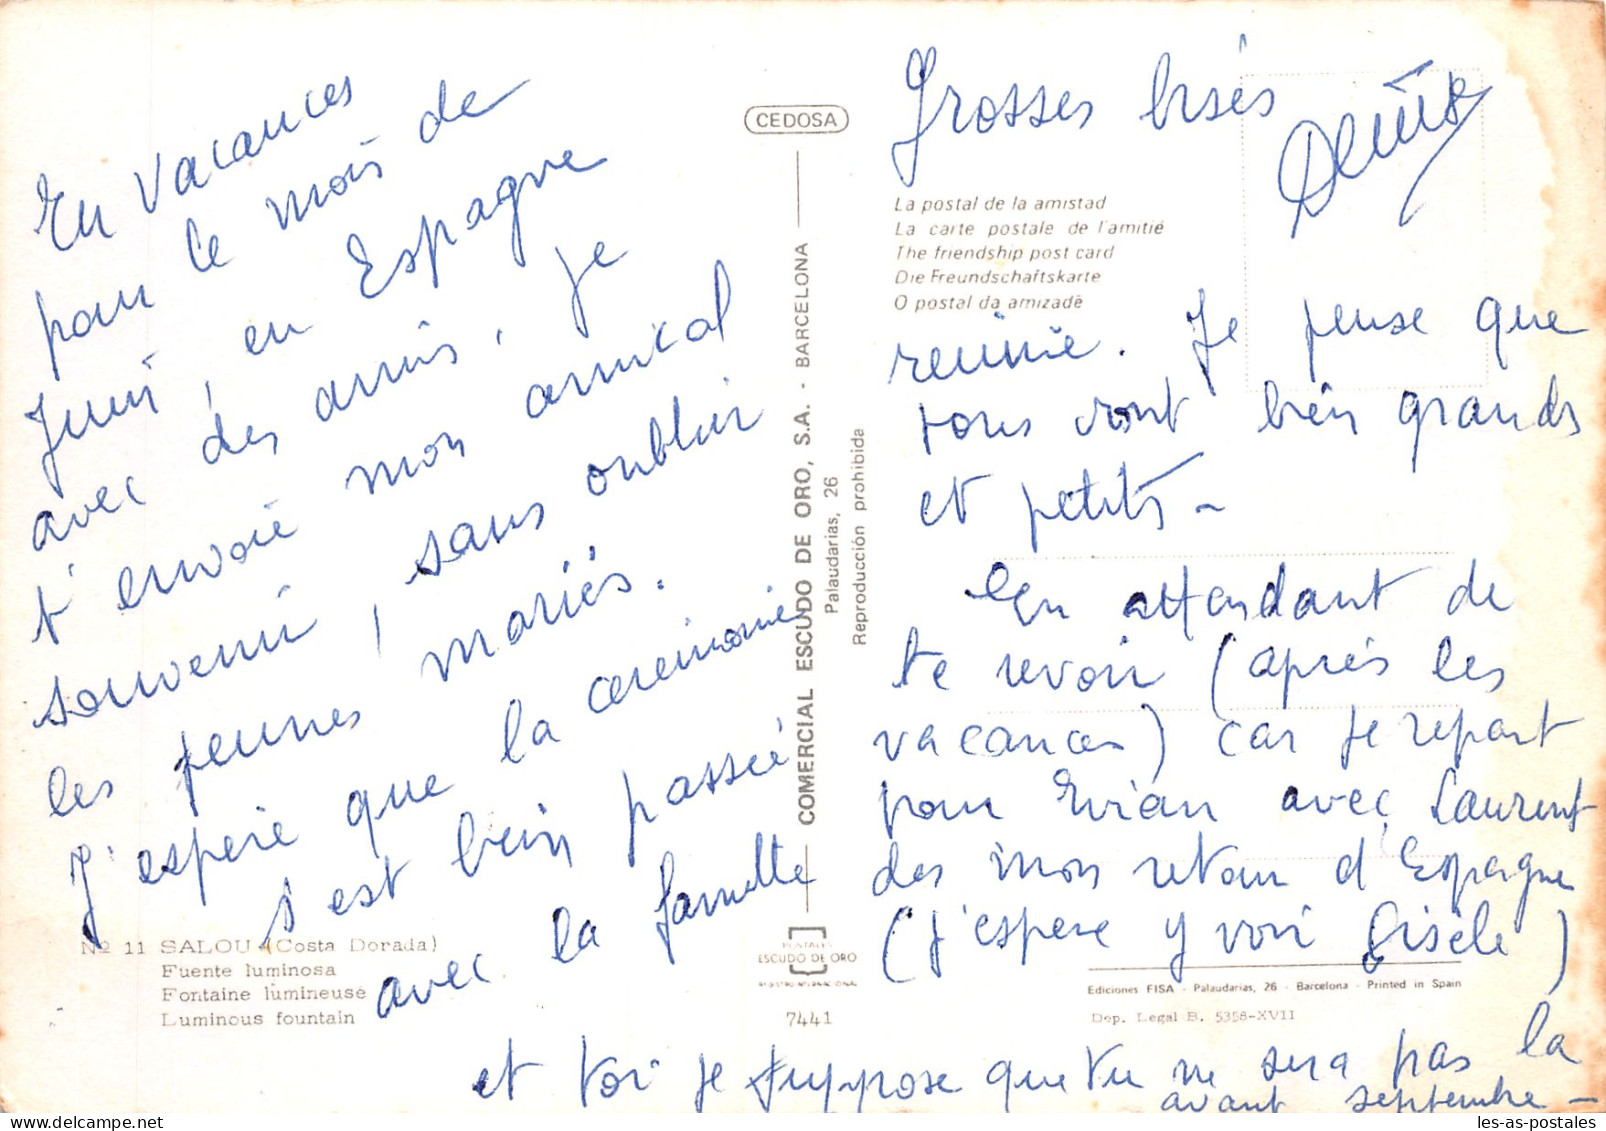 En vacances
pour le mois de
Juin, en Espagne
avec des amis, je
t'envoie mon amical
souvenir, sans oublier
les jeunes mariés.
J'espère que la ceremonie
s'est bien passée
avec la famille
reunie. Je pense que
tous vont bien grands
et petits -
En attendant de
te revoir (après les
vacances) car je repart
pour Evian avec Laurent
des mon retour d'Espagne
(j'espere y voir Gisèle)
et toi je suppose que tu ne sera pas la
avant septembre -
Grosses bises
Denise
CEDOSA
COMERCIAL ESCUDO DE ORO, S.A. - BARCELONA
Palaudarias, 26
Reproducción prohibida
La postal de la amistad
La carte postale de l'amitié
The friendship post card
Die Freundschaftskarte
O postal da amizade
Nº 11 SALOU (Costa Dorada)
Fuente luminosa
Fontaine lumineuse
Luminous fountain
POSTALES
ESCUDO DE ORO
REGISTRO INTERNACIONAL
7441
Ediciones FISA - Palaudarias, 26 - Barcelona - Printed in Spain
Dep. Legal B. 5358-XVII
les-as-postales